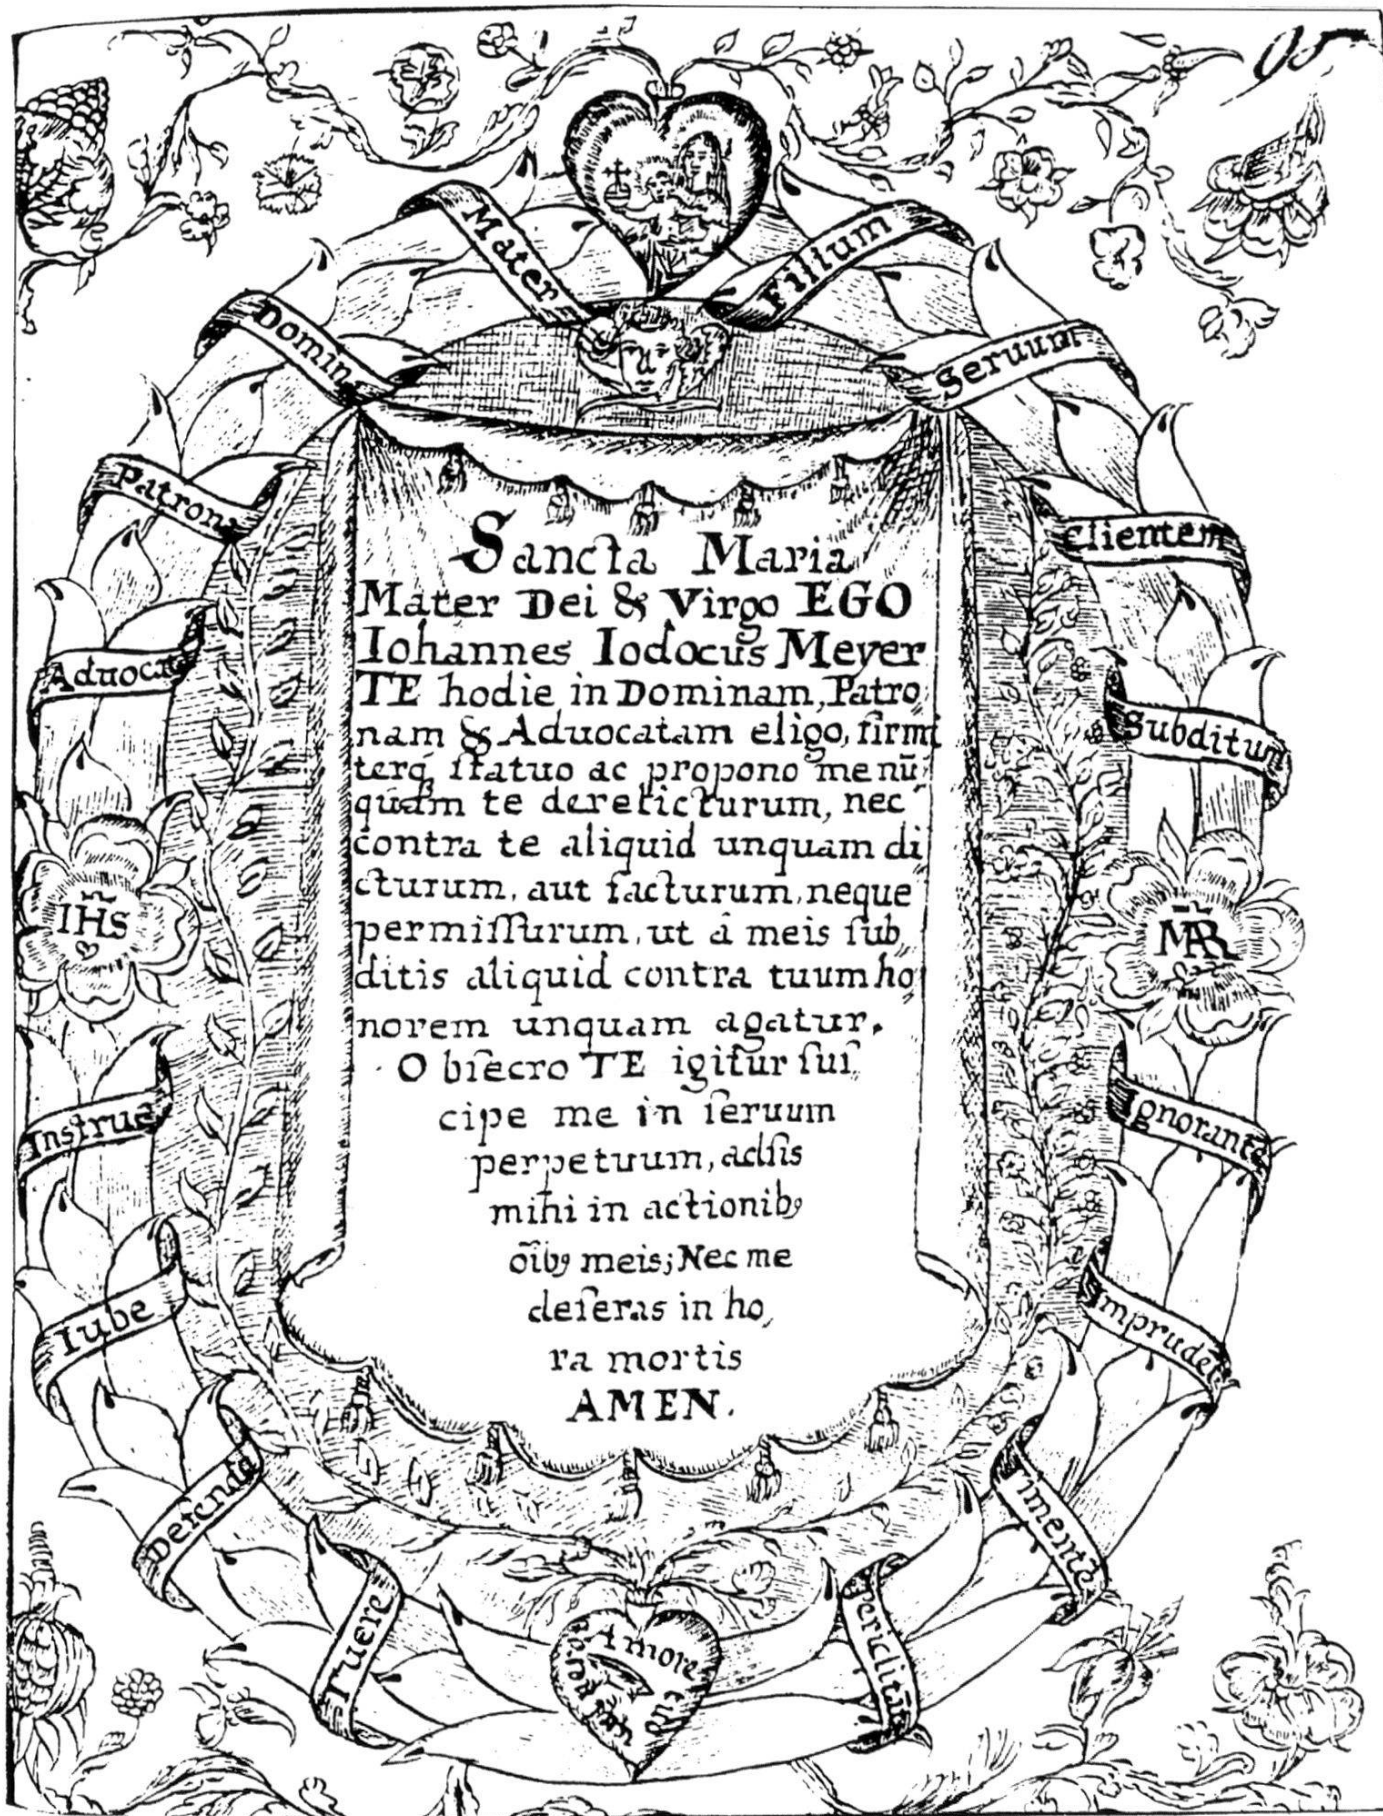 Mater
Filium
Domin
Seruum
Patron
Clientem
Aduoca
Subditum
IHS
MAR
Instrue
Ignorantē
Iube
Imprudētē
Defenda
Timente
Tuere
Periclitātē
Amore
tuo
Sancta Maria
Mater Dei & Virgo EGO
Iohannes Iodocus Meyer
TE hodie in Dominam, Patro,,
nam & Aduocatam eligo, firmi
terq́ ſtatuo ac propono me nū,,
quam te derelicturum, nec
contra te aliquid unquam di
cturum, aut facturum, neque
permiſſurum, ut â meis ſub,,
ditis aliquid contra tuum ho,,
norem unquam agatur.
Obſecro TE igitur ſuſ,,
cipe me in ſeruum
perpetuum, adſis
mihi in actionibꝫ
oībꝫ meis; Nec me
deſeras in ho,,
ra mortis
AMEN.